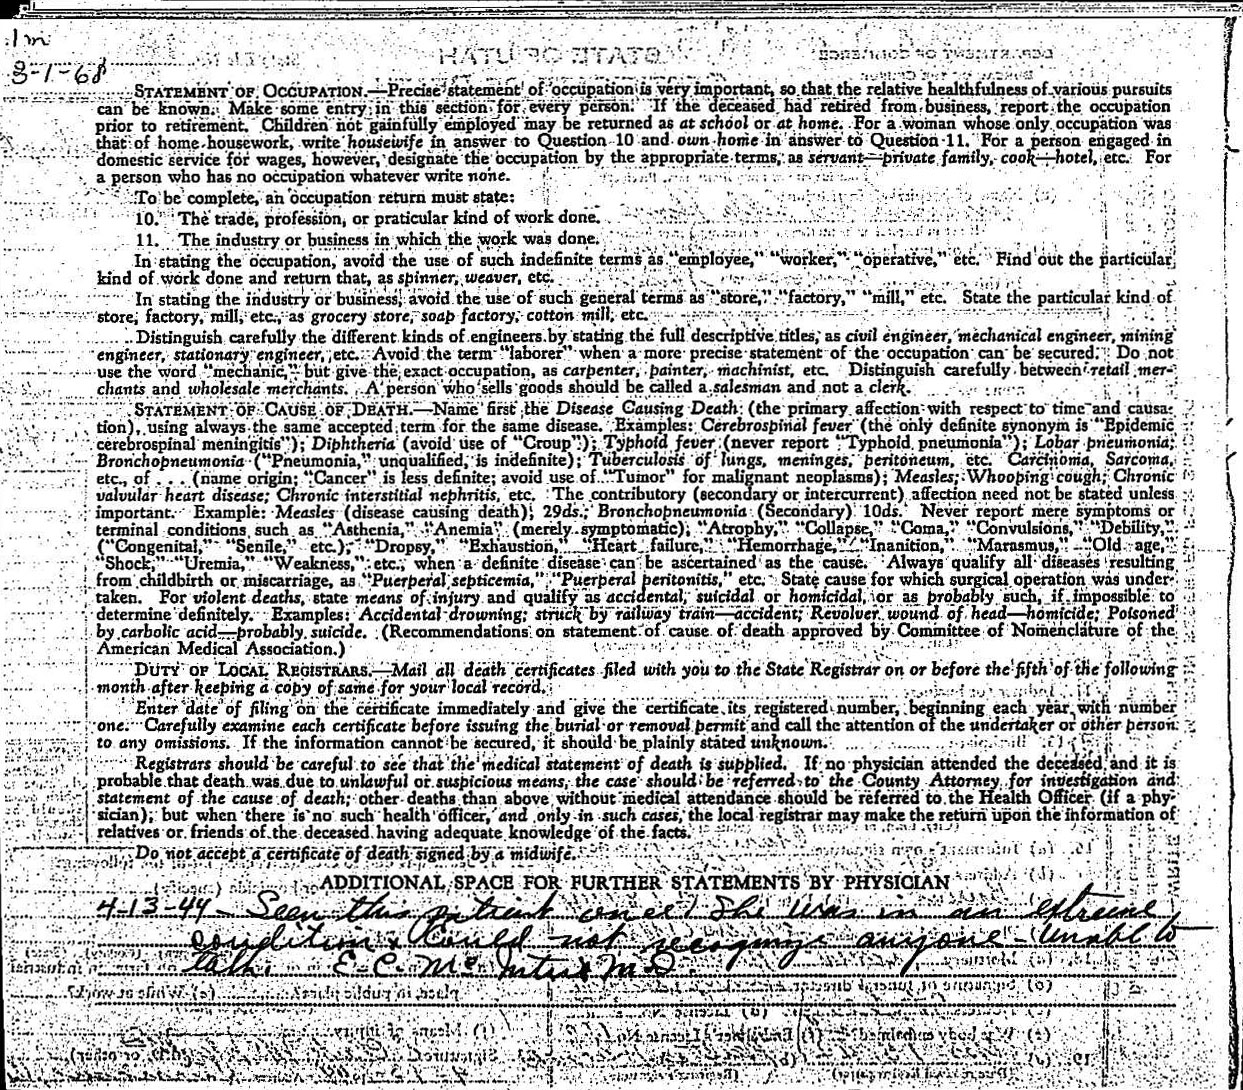 1m
3-1-68
STATEMENT OF OCCUPATION.—Precise statement of occupation is very important, so that the relative healthfulness of various pursuits
can be known. Make some entry in this section for every person. If the deceased had retired from business, report the occupation
prior to retirement. Children not gainfully employed may be returned as at school or at home. For a woman whose only occupation was
that of home housework, write housewife in answer to Question 10 and own home in answer to Question 11. For a person engaged in
domestic service for wages, however, designate the occupation by the appropriate terms, as servant—private family, cook—hotel, etc. For
a person who has no occupation whatever write none.
To be complete, an occupation return must state:
10. The trade, profession, or praticular kind of work done.
11. The industry or business in which the work was done.
In stating the occupation, avoid the use of such indefinite terms as "employee," "worker," "operative," etc. Find out the particular
kind of work done and return that, as spinner, weaver, etc.
In stating the industry or business, avoid the use of such general terms as "store," "factory," "mill," etc. State the particular kind of
store, factory, mill, etc., as grocery store, soap factory, cotton mill, etc.
Distinguish carefully the different kinds of engineers by stating the full descriptive titles, as civil engineer, mechanical engineer, mining
engineer, stationary engineer, etc. Avoid the term "laborer" when a more precise statement of the occupation can be secured. Do not
use the word "mechanic," but give the exact occupation, as carpenter, painter, machinist, etc. Distinguish carefully between retail mer-
chants and wholesale merchants. A person who sells goods should be called a salesman and not a clerk.
STATEMENT OF CAUSE OF DEATH.—Name first the Disease Causing Death (the primary affection with respect to time and causa-
tion), using always the same accepted term for the same disease. Examples: Cerebrospinal fever (the only definite synonym is "Epidemic
cerebrospinal meningitis"); Diphtheria (avoid use of "Croup"); Typhoid fever (never report "Typhoid pneumonia"); Lobar pneumonia;
Bronchopneumonia ("Pneumonia," unqualified, is indefinite); Tuberculosis of lungs, meninges, peritoneum, etc. Carcinoma, Sarcoma,
etc., of . . . (name origin; "Cancer" is less definite; avoid use of "Tumor" for malignant neoplasms); Measles; Whooping cough; Chronic
valvular heart disease; Chronic interstitial nephritis, etc. The contributory (secondary or intercurrent) affection need not be stated unless
important. Example: Measles (disease causing death), 29ds.; Bronchopneumonia (Secondary) 10ds. Never report mere symptoms or
terminal conditions, such as "Asthenia," "Anemia" (merely symptomatic), "Atrophy," "Collapse," "Coma," "Convulsions," "Debility,"
("Congenital," "Senile," etc.); "Dropsy," "Exhaustion," "Heart failure," "Hemorrhage," "Inanition," "Marasmus," "Old age,"
"Shock," "Uremia," "Weakness," etc., when a definite disease can be ascertained as the cause. Always qualify all diseases resulting
from childbirth or miscarriage, as "Puerperal septicemia," "Puerperal peritonitis," etc. State cause for which surgical operation was under-
taken. For violent deaths, state means of injury and qualify as accidental, suicidal or homicidal, or as probably such, if impossible to
determine definitely. Examples: Accidental drowning; struck by railway train—accident; Revolver wound of head—homicide; Poisoned
by carbolic acid—probably suicide. (Recommendations on statement of cause of death approved by Committee of Nomenclature of the
American Medical Association.)
DUTY OF LOCAL REGISTRARS.—Mail all death certificates filed with you to the State Registrar on or before the fifth of the following
month after keeping a copy of same for your local record.
Enter date of filing on the certificate immediately and give the certificate its registered number, beginning each year with number
one. Carefully examine each certificate before issuing the burial or removal permit and call the attention of the undertaker or other person
to any omissions. If the information cannot be secured, it should be plainly stated unknown.
Registrars should be careful to see that the medical statement of death is supplied. If no physician attended the deceased and it is
probable that death was due to unlawful or suspicious means, the case should be referred to the County Attorney for investigation and
statement of the cause of death; other deaths than above without medical attendance should be referred to the Health Officer (if a phy-
sician); but when there is no such health officer, and only in such cases, the local registrar may make the return upon the information of
relatives or friends of the deceased having adequate knowledge of the facts.
Do not accept a certificate of death signed by a midwife.
ADDITIONAL SPACE FOR FURTHER STATEMENTS BY PHYSICIAN
4-13-44 - Seen this patient once! She was in an extreme
condition & Could not recognize anyone - Unable to
talk. E. C. McIntire M.D.